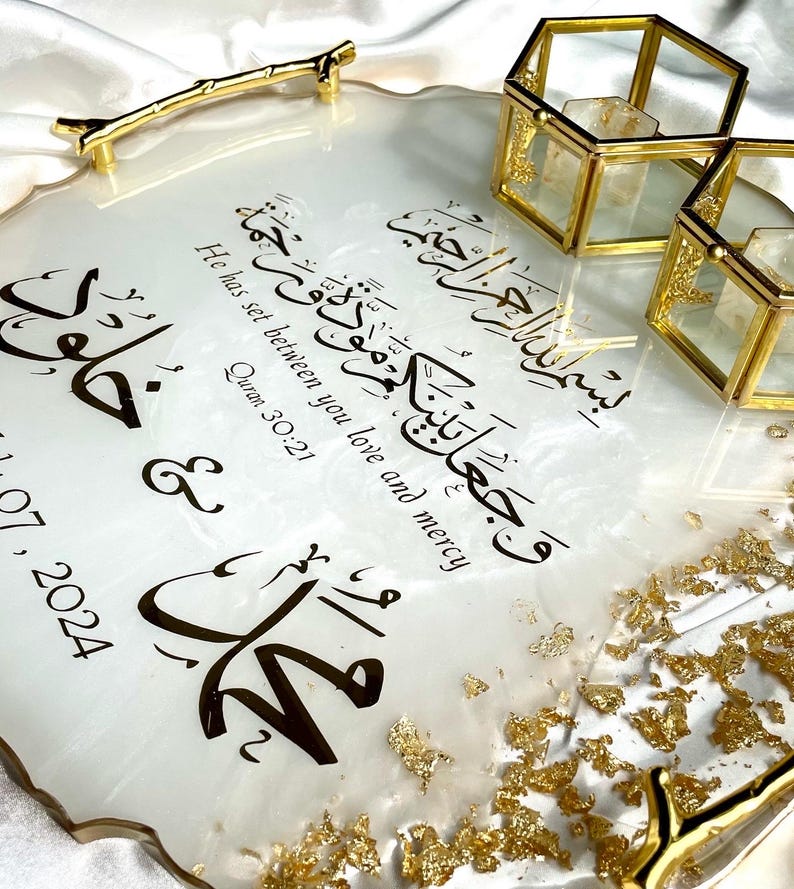 بِسْمِ اللهِ الرَّحْمٰنِ الرَّحِيْمِ
وَجَعَلَ بَيْنَكُمْ مَّوَدَّةً وَّرَحْمَةً
He has set between you love and mercy
Quran 30:21
مُحَمَّد & خُلُوْد
07, 2024